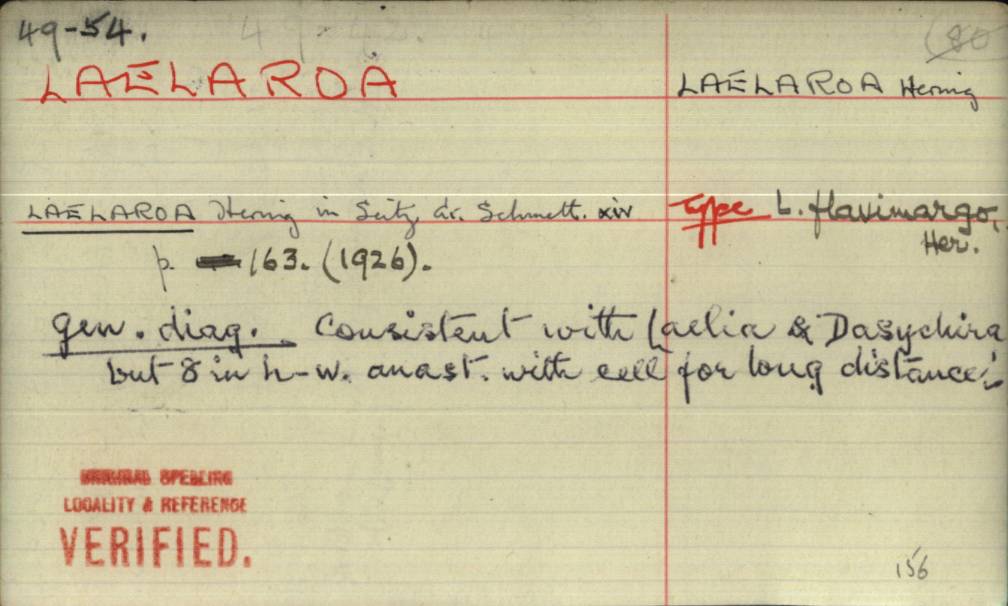 49-54.
(80
LAELAROA
LAELAROA Hering
LAELAROA Hering in Seitz, Gr. Schmett. xiv
Type L. flavimargo,
Her.
p. 163. (1926).
gen. diag. Consistent with Laelia & Dasychira
but 8 in h-w. anast. with cell for long distance.
ORIGINAL SPELLING
LOCALITY & REFERENCE
VERIFIED.
156